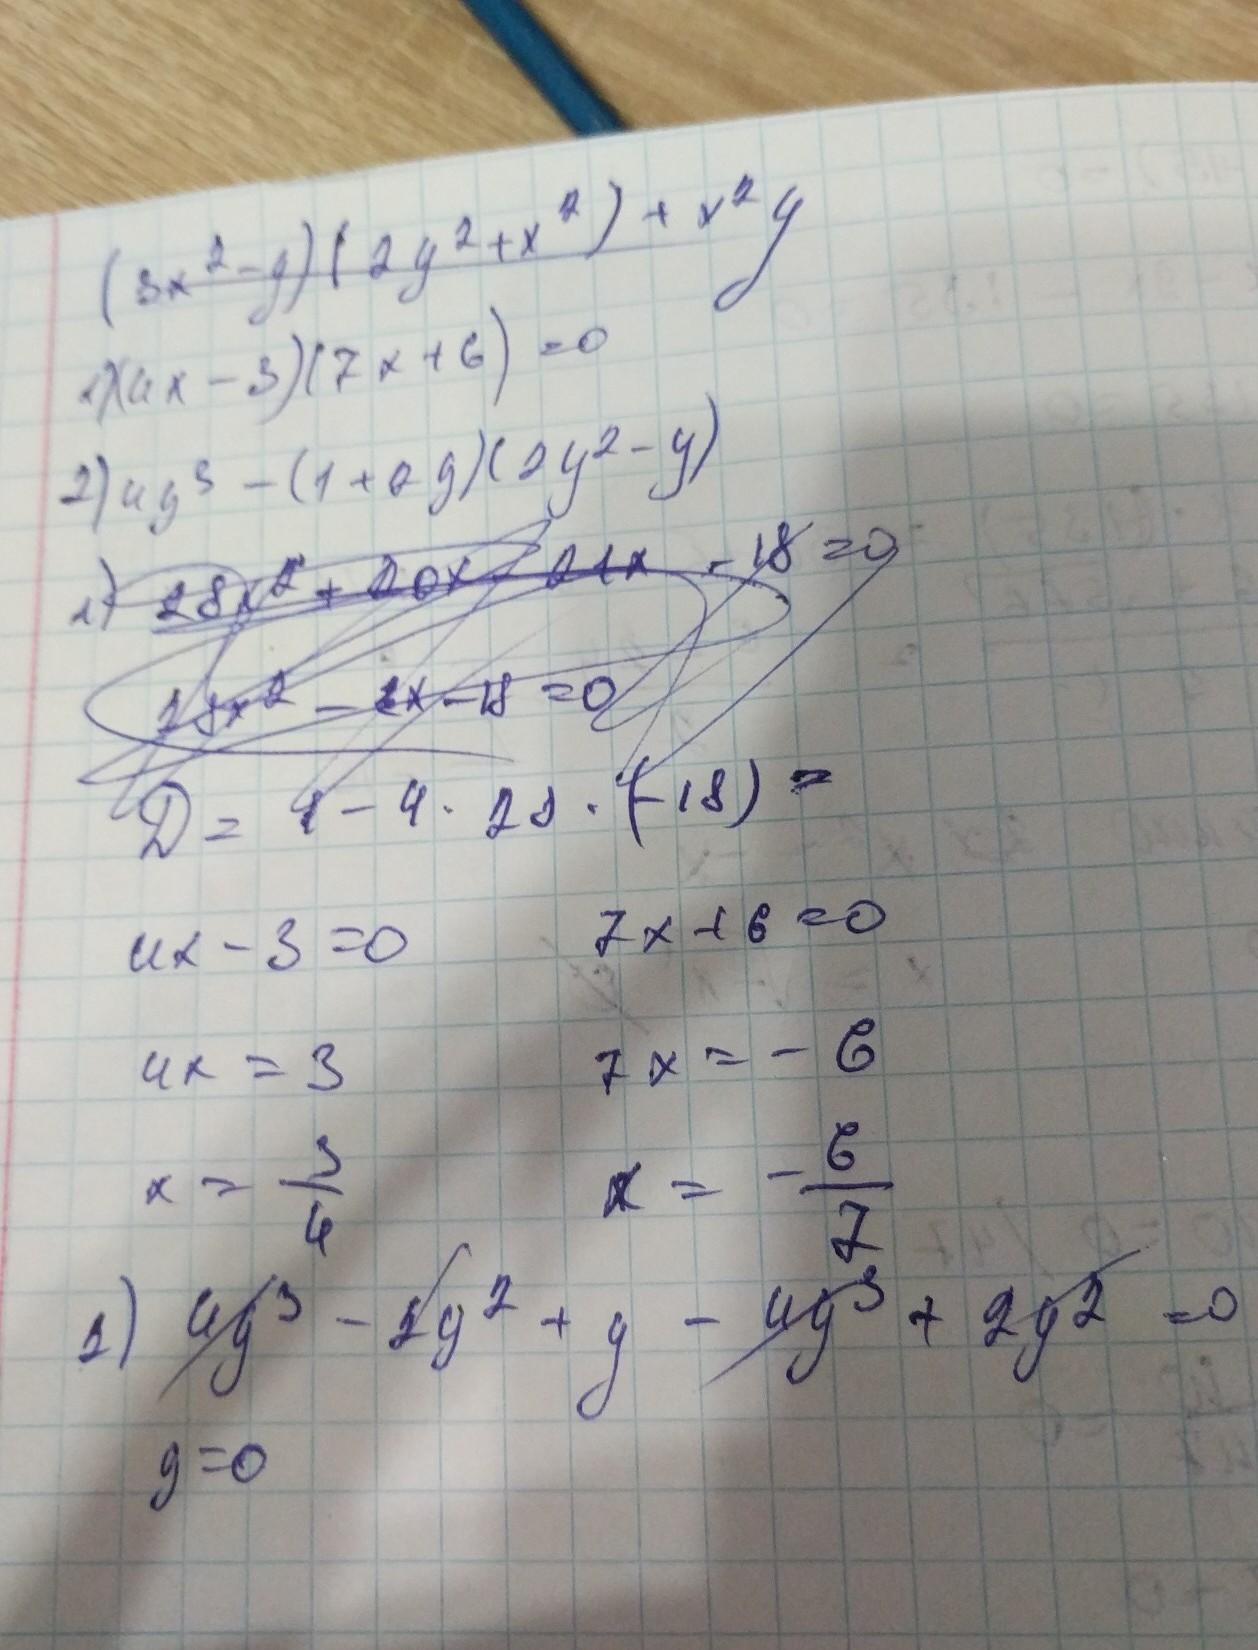 (3x²-y)(2y²+x²)+x²y
1)(4x-3)(7x+6)=0
2)4y³-(1+2y)(2y²-y)
1) 28x²+20x-21x-18=0
28x²-2x-18=0
D=1-4·28·(-18)=
4x-3=0 7x+6=0
4x=3 7x=-6
x=3/4 x=-6/7
2) 4y³-2y²+y-4y³+2y²=0
y=0